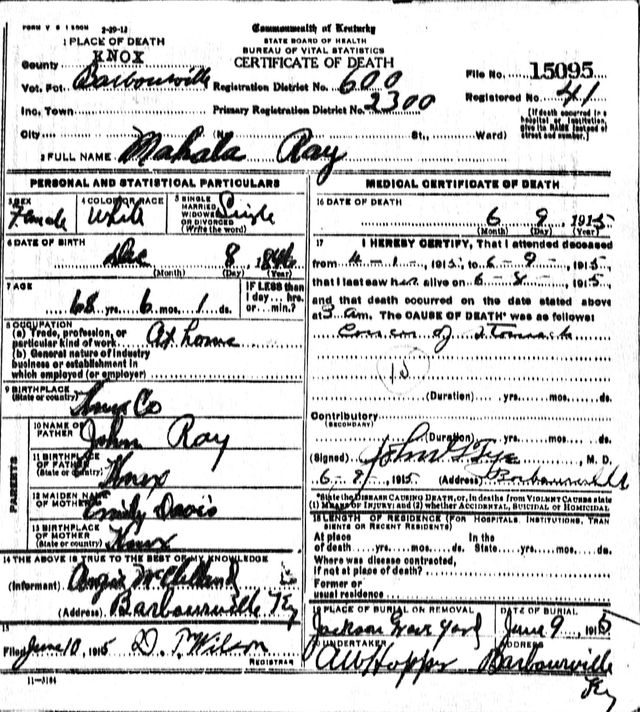 FORM V S 1 2-29-12
Commonwealth of Kentucky
STATE BOARD OF HEALTH
BUREAU OF VITAL STATISTICS
CERTIFICATE OF DEATH
1 PLACE OF DEATH
County KNOX
Vot. Pct. Barbourville Registration District No. 600
File No. 15095
Inc. Town Primary Registration District No. 2300
Registered No. 41
City (No St., Ward)
[If death occurred in a hospital or institution, give its NAME instead of street and number.]
2 FULL NAME Mahala Ray
PERSONAL AND STATISTICAL PARTICULARS
3 SEX Female
4 COLOR OR RACE White
5 SINGLE MARRIED WIDOWED OR DIVORCED (Write the word) Single
6 DATE OF BIRTH
Dec 8, 1846
(Month) (Day) (Year)
7 AGE
68 yrs. 6 mos. 1 ds.
IF LESS than 1 day... hrs. or... min.?
8 OCCUPATION
(a) Trade, profession, or particular kind of work At home
(b) General nature of industry
business or establishment in
which employed (or employer)
9 BIRTHPLACE
(State or country) Knox Co
PARENTS
10 NAME OF FATHER John Ray
11 BIRTHPLACE OF FATHER (State or country) Knox
12 MAIDEN NAME OF MOTHER Emily Davis
13 BIRTHPLACE OF MOTHER (State or country) Knox
14 THE ABOVE IS TRUE TO THE BEST OF MY KNOWLEDGE
(Informant) McClelland
(Address) Barbourville Ky
15
Filed June 10, 1915 D. T. Wilson
REGISTRAR
11-3184
MEDICAL CERTIFICATE OF DEATH
16 DATE OF DEATH
6 9 1915
(Month) (Day) (Year)
17 I HEREBY CERTIFY, That I attended deceased
from 4-1-, 1915, to 6-9-, 1915
that I last saw her alive on 6-8-, 1915
and that death occurred on the date stated above
at 3 am. The CAUSE OF DEATH* was as follows:
Cancer of Stomach
(Duration) yrs. mos. ds.
Contributory
(SECONDARY)
(Duration) yrs. mos. ds.
(Signed) John G Tye, M. D.
6-9-, 1915 (Address) Barbourville
*State the DISEASE CAUSING DEATH, or, in deaths from VIOLENT CAUSES state
(1) MEANS OF INJURY; and (2) whether ACCIDENTAL, SUICIDAL or HOMICIDAL
18 LENGTH OF RESIDENCE (FOR HOSPITALS, INSTITUTIONS, TRAN
SIENTS OR RECENT RESIDENTS)
At place of death yrs. mos. ds. In the State yrs. mos. ds.
Where was disease contracted,
if not at place of death?
Former or
usual residence
19 PLACE OF BURIAL OR REMOVAL DATE OF BURIAL
Jackson Grave Yard June 9 1915
20 UNDERTAKER ADDRESS
AW Hopper Barbourville
Ky